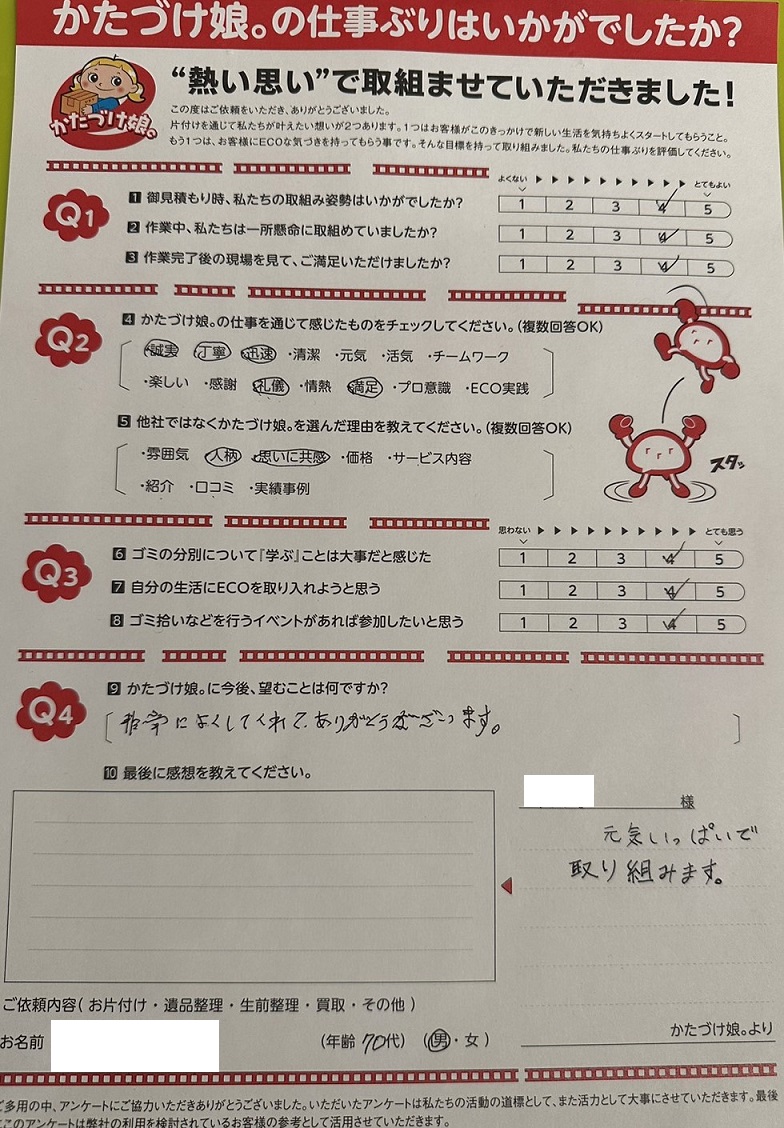 かたづけ娘。の仕事ぶりはいかがでしたか?
かたづけ娘。
“熱い思い”で取組ませていただきました!
この度はご依頼をいただき、ありがとうございました。
片付けを通じて私たちが叶えたい想いが2つあります。1つはお客様がこのきっかけで新しい生活を気持ちよくスタートしてもらうこと。
もう1つは、お客様にECOな気づきを持ってもらう事です。そんな目標を持って取り組みました。私たちの仕事ぶりを評価してください。
よくない ▶ ▶ ▶ ▶ ▶ ▶ ▶ ▶ ▶ ▶ とてもよい
Q1
1 御見積もり時、私たちの取組み姿勢はいかがでしたか? 1 2 3 4 5
2 作業中、私たちは一所懸命に取組めていましたか? 1 2 3 4 5
3 作業完了後の現場を見て、ご満足いただけましたか? 1 2 3 4 5
Q2
4 かたづけ娘。の仕事を通じて感じたものをチェックしてください。(複数回答OK)
・誠実 ・丁寧 ・迅速 ・清潔 ・元気 ・活気 ・チームワーク
・楽しい ・感謝 ・礼儀 ・情熱 ・満足 ・プロ意識 ・ECO実践
5 他社ではなくかたづけ娘。を選んだ理由を教えてください。(複数回答OK)
・雰囲気 ・人柄 ・思いに共感 ・価格 ・サービス内容
・紹介 ・口コミ ・実績事例
スタッ
思わない ▶ ▶ ▶ ▶ ▶ ▶ ▶ ▶ ▶ ▶ とても思う
Q3
6 ゴミの分別について『学ぶ』ことは大事だと感じた 1 2 3 4 5
7 自分の生活にECOを取り入れようと思う 1 2 3 4 5
8 ゴミ拾いなどを行うイベントがあれば参加したいと思う 1 2 3 4 5
Q4
9 かたづけ娘。に今後、望むことは何ですか?
非常によくしてくれて、ありがとうございます。
10 最後に感想を教えてください。
様
元気いっぱいで
取り組みます。
かたづけ娘。より
ご依頼内容( お片付け・遺品整理・生前整理・買取・その他 )
お名前 (年齢 70代) (男・女)
ご多用の中、アンケートにご協力いただきありがとうございました。いただいたアンケートは私たちの活動の道標として、また活力として大事にさせていただきます。最後
にこのアンケートは弊社の利用を検討されているお客様の参考として活用させていただきます。